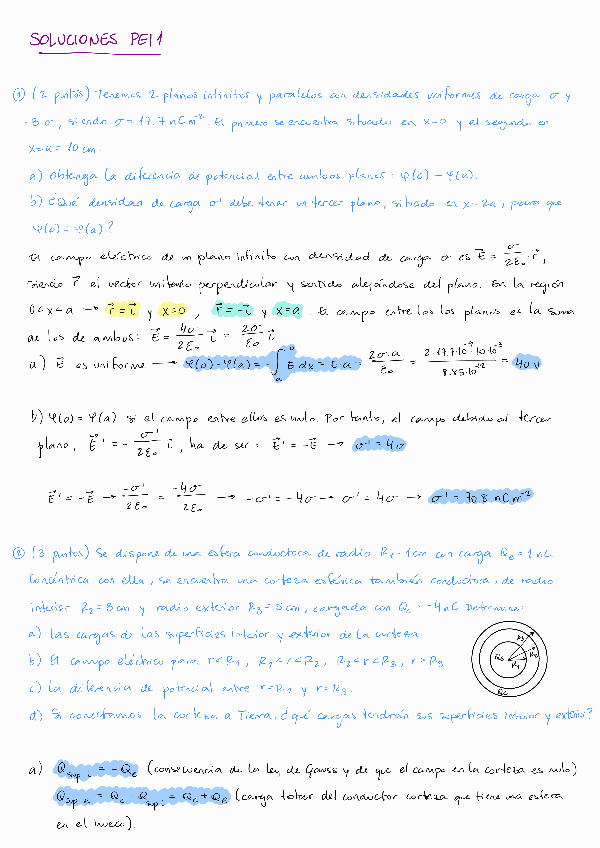 SOLUCIONES PEI 1
① (2 puntos) Tenemos 2 planos infinitos y paralelos con densidades uniformes de carga σ y
-3σ, siendo σ = 17.7 nC m⁻². El primero se encuentra situado en x=0 y el segundo en
x=a = 10 cm.
a) Obtenga la diferencia de potencial entre ambos planos: φ(0) - φ(a).
b) ¿Qué densidad de carga σ' debe tener un tercer plano, situado en x=2a, para que
φ(0) = φ(a)?
El campo eléctrico de un plano infinito con densidad de carga σ es E⃗ = σ/2ε₀ · r⃗,
siendo r⃗ el vector unitario perpendicular y sentido alejándose del plano. En la región
0<x<a → r⃗ = i⃗ y x=0, r⃗ = -i⃗ y x=a. El campo entre los planos es la suma
de los de ambos: E⃗ = 4σ/2ε₀ i⃗ = 2σ/ε₀ i⃗
a) E⃗ es uniforme → φ(0) - φ(a) = -∫ₐ⁰ E dx = E a = 2σ·a/ε₀ = 2·17.7·10⁻⁹·10·10⁻²/8.85·10⁻¹² = 40 V
b) φ(0) = φ(a) si el campo entre ellos es nulo. Por tanto, el campo debido al tercer
plano, E⃗' = -σ'/2ε₀ i⃗, ha de ser: E⃗' = -E⃗ → σ' = 4σ
E⃗' = -E⃗ → -σ'/2ε₀ = -4σ/2ε₀ → -σ' = -4σ → σ' = 4σ → σ' = 70.8 nC m⁻²
② (3 puntos) Se dispone de una esfera conductora de radio R₁ = 1 cm con carga Qe = 1 nC.
Concéntrica con ella, se encuentra una corteza esférica también conductora, de radio
interior R₂ = 3 cm y radio exterior R₃ = 5 cm, cargada con Qc = -4 nC. Determine:
a) Las cargas de las superficies interior y exterior de la corteza.
b) El campo eléctrico para r<R₁, R₁<r<R₂, R₂<r<R₃, r>R₃
c) La diferencia de potencial entre r=R₁ y r=R₃.
d) Si conectamos la corteza a Tierra, ¿qué cargas tendrán sus superficies interior y exterior?
R₃
R₂
Qe
R₁
Qc
a) Q sup i = -Qe (consecuencia de la ley de Gauss y de que el campo en la corteza es nulo)
Q sup e = Qc - Q sup i = Qc + Qe (carga total del conductor corteza que tiene una esfera
en el hueco).